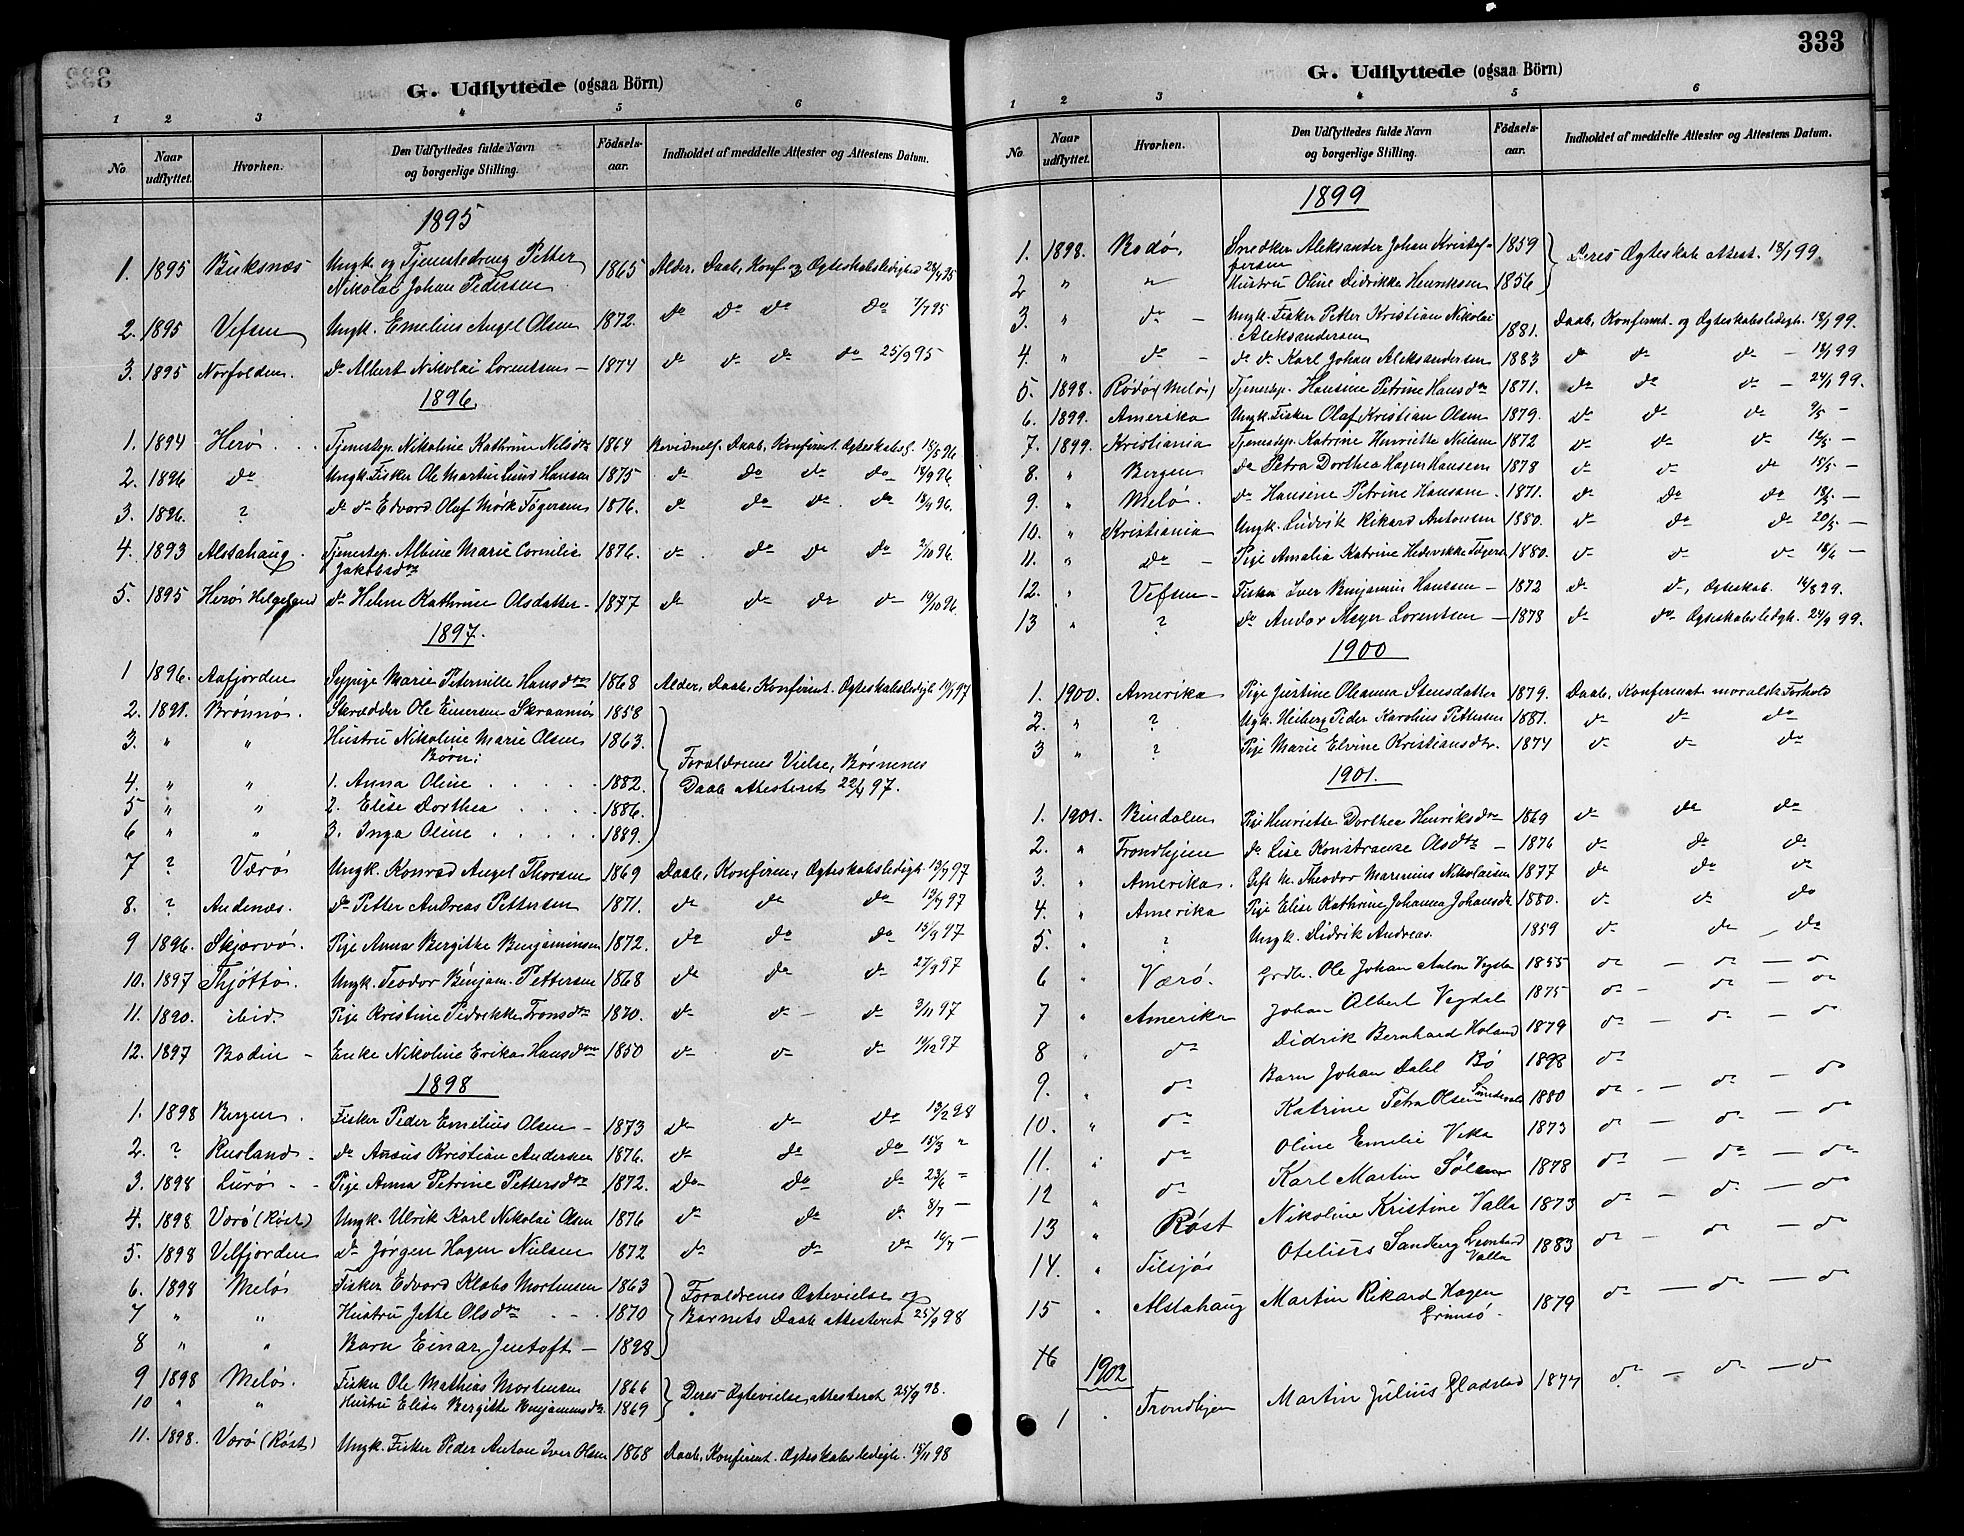 G. Udflyttede (ogsaa Börn)
1 2 3 4 5 6
No. Naar udflyttet. Hvorhen. Den Udflyttedes fulde Navn og borgerlige Stilling. Fødsels-aar. Indholdet af meddelte Attester og Attestens Datum.
1895
1. 1895 Buksnæs Ungk. og Tjenestedreng Petter 1865 Alder, Daab, Konf og Ægteskabsledighed
Nikolai Johan Pedersen
2. 1895 Vefsen Ungk. Emelius Angel Olsen 1872. do do do do 7/7 95
3. 1895 Norfolden. do Albert Nikolai Lorentsen – 1874 do do do do 25/9 95
1896.
1. 1894 Herø Tjenestep. Nikoline Kathrine Nilsdtr 1864 Daab, Konfirmt. Ægteskabsl. 15/5 96
2. 1896 do Ungk. Fisker Ole Martin Lund Hansen 1875 do do do do 18/9 96.
3. 1896. ? do do Edvard Olaf Mørk Tøgersen 1876. do do do do 18/9 96.
4. 1893 Alstahaug. Tjenestep. Albine Marie Cornelia 1876. do do do do 2/10 96.
Jakobsdtr
5. 1895 Herø Helgeland do Helene Kathrine Olsdatter – 1877 do do do do 19/10 96.
1897.
1 1896. Aafjorden Sypige Marie Peternille Hansdtr 1868 Alder, Daab, Konfirmt. Ægteskabsledigh.
2. 1898. Brønnø. Skrædder Ole Einersen Skraanes 1858
3. " " Hustru Nikoline Marie Olsen 1863.
Børn:
Forældrenes Vielse, Børnenes
4. " " 1. Anna Oline 1882.
Daab attesteret 22/4 97.
5 " " 2. Elise Dorthea 1886.
6 " " 3. Inga Oline 1889.
7 ? Værø Ungk. Konrad Angel Thorsen 1869 Daab, Konfirm, Ægteskabsledigh. 13/7 97
8. ? Andenæs. do Petter Andreas Pettersen 1871. do do do
9 1896. Skjærvø. Pige Anna Bergitte Benjaminsen 1872. do do do 13/9 97
10. 1897 Thjøttø. Ungk. Teodor Benjam. Pettersen 1868 do do do 27/9 97
11. 1890. ibid. Pige Kristine Pedrikke Tronsdtr 1870. do do – do 2/11 97
12. 1897 Bodin – Enke Nikoline Erika Hansdtr 1850 do do do
1898
1. 1898 Bergen. Fisker Peder Emelius Olsen – 1873 do do do 13/2 98
2. ? Rusland. do Ansus Kristian Andersen 1876. do do do 15/3 "
3. 1898 Lurø – Pige Anna Petrine Pettersdtr 1872. do do do
4. 1898 Værø (Røst) Ungk. Ulrik Karl Nikolai Olsen 1876 do do do 8/7 –
5. 1898 Velfjorden do Jørgen Hagen Nielsen 1872 do do do –
6. 1898 Melø Fisker Edvard Klæbo Mortensen 1863 Forældrenes Ægtevielse og
7 " " Hustru Jette Olsdtr 1870 Barnets Daab attesteret 25/9 98
8 " " Barn Einar Jentoft – 1898
9 1898 Melø. Fisker Ole Mathias Mortensen 1866 Deres Ægtevielse attesteret 25/9 98.
10 " " Hustru Elisa Bergitte Benjaminsdtr 1869
11. 1898. Værø (Røst) Ungk. Fisker Peder Anton Iver Olsen 1868 Daab, Konfirmt. Ægteskabsledigh. 15/11 98
333
G. Udflyttede (ogsaa Börn)
1 2 3 4 5 6
No. Naar udflyttet. Hvorhen. Den Udflyttedes fulde Navn og borgerlige Stilling. Fødsels-aar. Indholdet af meddelte Attester og Attestens Datum.
1899
1. 1898. Bodø. Snedker Aleksander Johan Kristof- 1859 Deres Ægteskab attest. 18/1 99.
fersen
2 " " Hustru Oline Didrikke Henriksen 1856
3. " do – Ungk. Fisker Petter Kristian Nikolai Daab, Konfirmt. og Ægteskabsledigh. 18/1 99.
Aleksandersen 1881.
4. " do – do do Karl Johan Aleksandersen 1883 do do do – 18/1 99
5. 1898. Rødø (Melø) Tjenestep. Hansine Petrine Hansdtr 1871. do do do – 24/1 99.
6. 1899. Amerika Ungk. Fisker Olaf Kristian Olsen 1879. do do do 9/5 –
7. 1899. Kristiania Tjenestep. Katrine Henriette Nielsen 1872 do do do –
8. " Bergen do Petra Dorthea Hagen Hansen 1878 do do do 15/5 –
9. " Melø. do Hansine Petrine Hansen. 1871. do do do –
10. " Kristiania Ungk. Ludvik Rikard Antonsen 1880. do do do 20/5 –
11. " do – Pige Amalia Katrine Hedevikke Tøgers. 1880. do do do 18/6 –
12. " Vefsen – Fisker Iver Benjamin Hansen – 1872 do do, Ægteskab.
13 " ? do Andor Meyer Lorentsen – 1878 do do Ægteskabsledigh. 24/9 99.
1900
1. 1900. Amerika Pige Justine Oleanna Stensdatter 1879. Daab, Konfirmat moralsk Forhold
2. " ? Ugk. Heiberg Peder Karolius Pettersen 1881. do do do
3 " ? Pige Marie Elvine Kristiansdtr. 1874 do do do
1901.
1. 1901. Bindalen Pige Henriette Dorthea Henriksdtr 1869 do do do
2. " Trondhjem do Lise Konstranse Olsdtr – 1876 do do do
3. " Amerika. Gift M. Theodor Marenius Nikolaisen 1877 do do do
4. " Amerika Pige Elise Kathrine Johanna Johansdtr 1880. do do do
5. " ? Ungk. Didrik Andreas. 1859 do do – do
6 " Værø. Grdbr. Ole Johan Anton 1855 do – do – do
7 " Amerika Johan Albert Vegdal 1875 do – do – do
8 " do Didrik Bernhard Holand 1879 do – do – do
9. " do Barn Johan Dahl Bø 1898 do
10. " do Katrine Petra Olsen 1880 do – do – do
11. " do Oline Emelie Vika 1873 do – do – do
12 " do Karl Martin 1878 do – do – do
13 " Røst Nikoline Kristine Valla 1873 do – do – do
14. " Tilsjø Otelius Sandberg Leonhard 1883 do – do – do
Valla
15 " Alstahaug Martin Rikard Hagen 1879 do – do – do
Grimsø.
16
1902
1 " Trondhjem Martin Julius Gladstad 1877 do – do – do